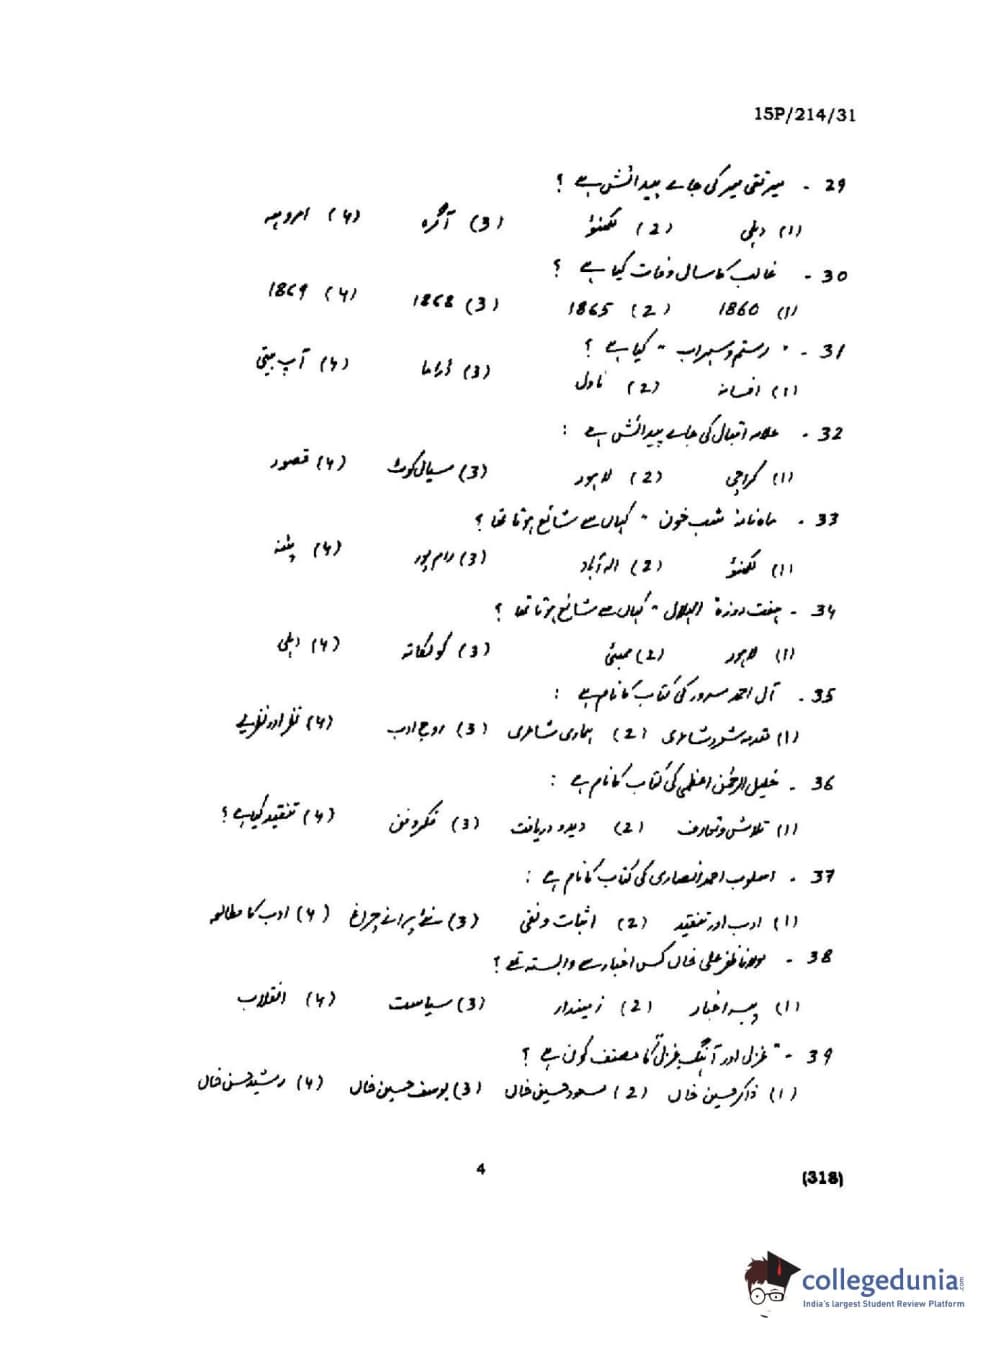 15P/214/31
29 - میر تقی میر کی جائے پیدائش ہے ؟
(1) دہلی (2) لکھنؤ (3) آگرہ (4) امروہہ
30 - غالب کا سال وفات کیا ہے ؟
(1) 1860 (2) 1865 (3) 1868 (4) 1869
31 - "رستم و سہراب" کیا ہے ؟
(1) افسانہ (2) ناول (3) ڈراما (4) آپ بیتی
32 - علامہ اقبال کی جائے پیدائش ہے :
(1) کراچی (2) لاہور (3) سیال کوٹ (4) قصور
33 - ماہ نامہ شب خون " کہاں سے شائع ہوتا تھا ؟
(1) لکھنؤ (2) الہ آباد (3) رام پور (4) پٹنہ
34 - ہفت روزہ " الہلال " کہاں سے شائع ہوتا تھا ؟
(1) لاہور (2) ممبئی (3) کولکاتہ (4) دہلی
35 - آل احمد سرور کی کتاب کا نام ہے :
(1) مقدمہ شعر و شاعری (2) ہماری شاعری (3) روح ادب (4) نظر اور نظریے
36 - خلیل الرحمٰن اعظمی کی کتاب کا نام ہے :
(1) تلاش و تعارف (2) دید و دریافت (3) فکر و فن (4) تنقید کیا ہے ؟
37 - اسلوب احمد انصاری کی کتاب کا نام ہے :
(1) ادب اور تنقید (2) اثبات و نفی (3) نئے پرانے چراغ (4) ادب کا مطالعہ
38 - مولانا ظفر علی خاں کس اخبار سے وابستہ تھے ؟
(1) پیسہ اخبار (2) زمیندار (3) سیاست (4) انقلاب
39 - "غزل اور آہنگ غزل" کا مصنف کون ہے ؟
(1) ذاکر حسین خاں (2) مسعود حسین خاں (3) یوسف حسین خاں (4) رشید حسن خاں
4
(318)
collegedunia.com
India's largest Student Review Platform